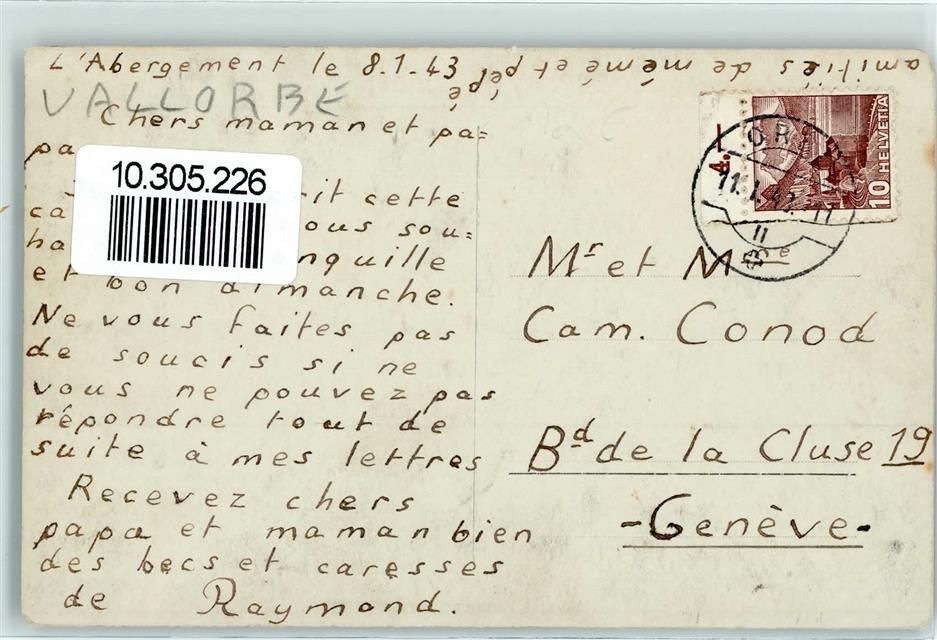 L'Abergement le 8.1.43
amitiés de mémé et pépé
VALLORBE
Chers maman et pa=
pa
10.305.226
cette
ca ous sou=
ha nquille
et bon dimanche.
Ne vous faites pas
de soucis si ne
vous ne pouvez pas
répondre tout de
suite à mes lettres
Recevez chers
papa et maman bien
des becs et caresses
de Raymond.
4. I
OR
11
10 HELVETIA
Mr et Mme
Cam. Conod
Bd de la Cluse 19
-Genève-